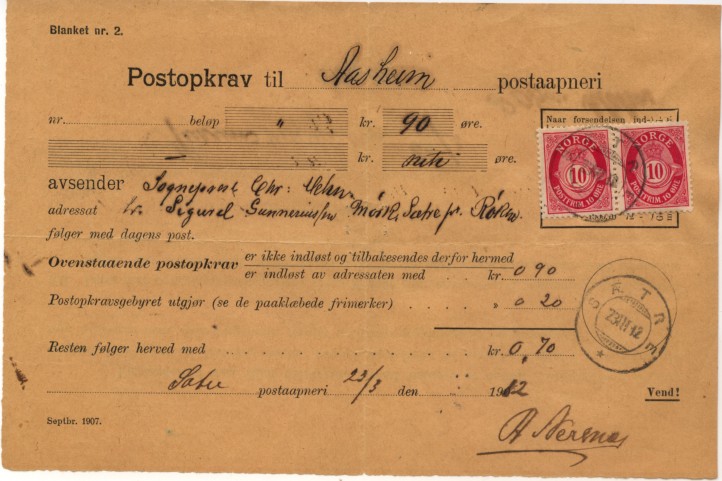 Blanket nr. 2.
Postopkrav til Aasheim postaapneri
nr. beløp " kr. 90 øre.
— kr. niti øre.
Naar forsendelsen
NORGE 10 POSTFRIM. 10 ØRE
NORGE 10 POSTFRIM. 10 ØRE
avsender Sogneprest Chr:
adressat hr. Sigurd Gunneriussen Mørk, Sætre pr. Røken
følger med dagens post.
Ovenstaaende postopkrav er ikke indløst og tilbakesendes derfor hermed
er indløst av adressaten med kr. 0 90
Postopkravsgebyret utgjør (se de paaklæbede frimerker) " 0 20
SÆTRE
23 III 12
Resten følger herved med kr. 0,70
Satre postaapneri 23/3 den 1912
Vend!
Septbr. 1907.